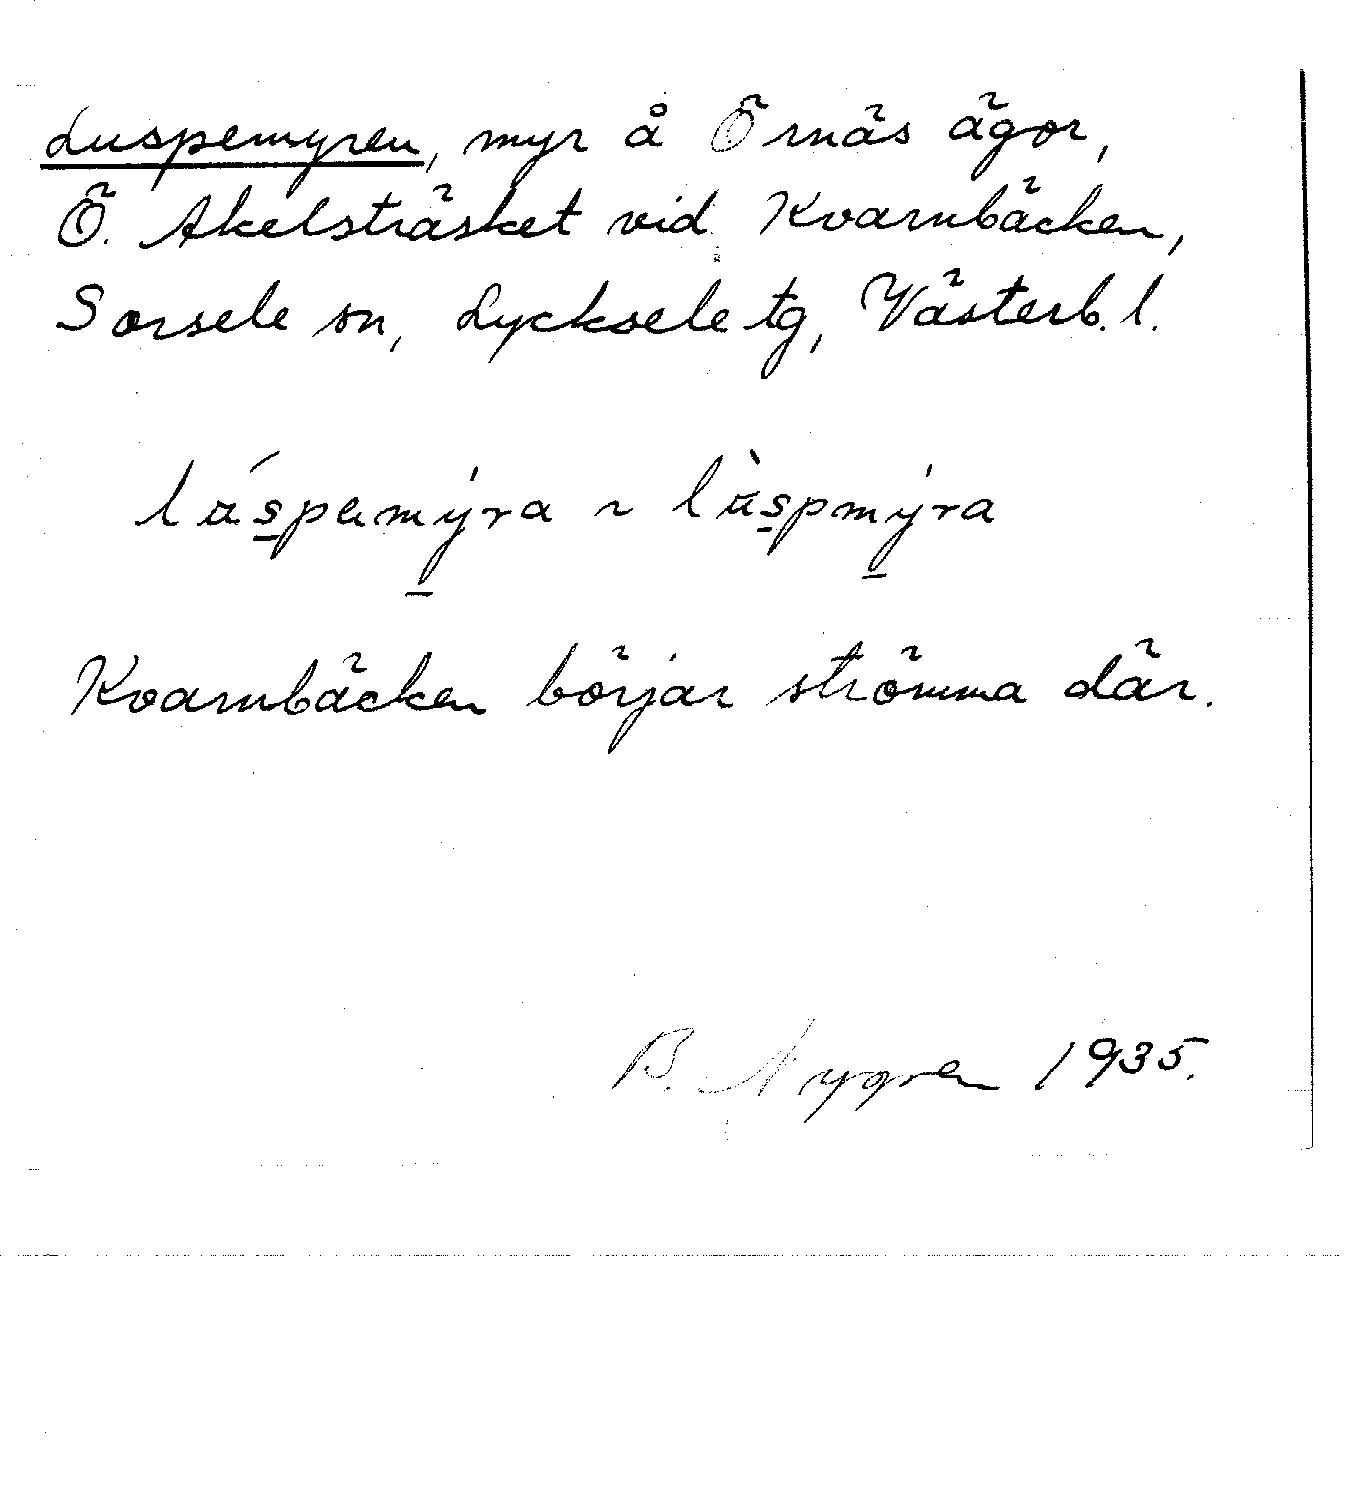 Luspemyren, myr å Örnäs ägor,
Ö. Akelsträsket vid Kvarnbäcken,
Sorsele sn, Lycksele tg, Västerb. l.
lúspemýra ~ lùspmýra
Kvarnbäcken börjar strömma där.
B. Nygren 1935.